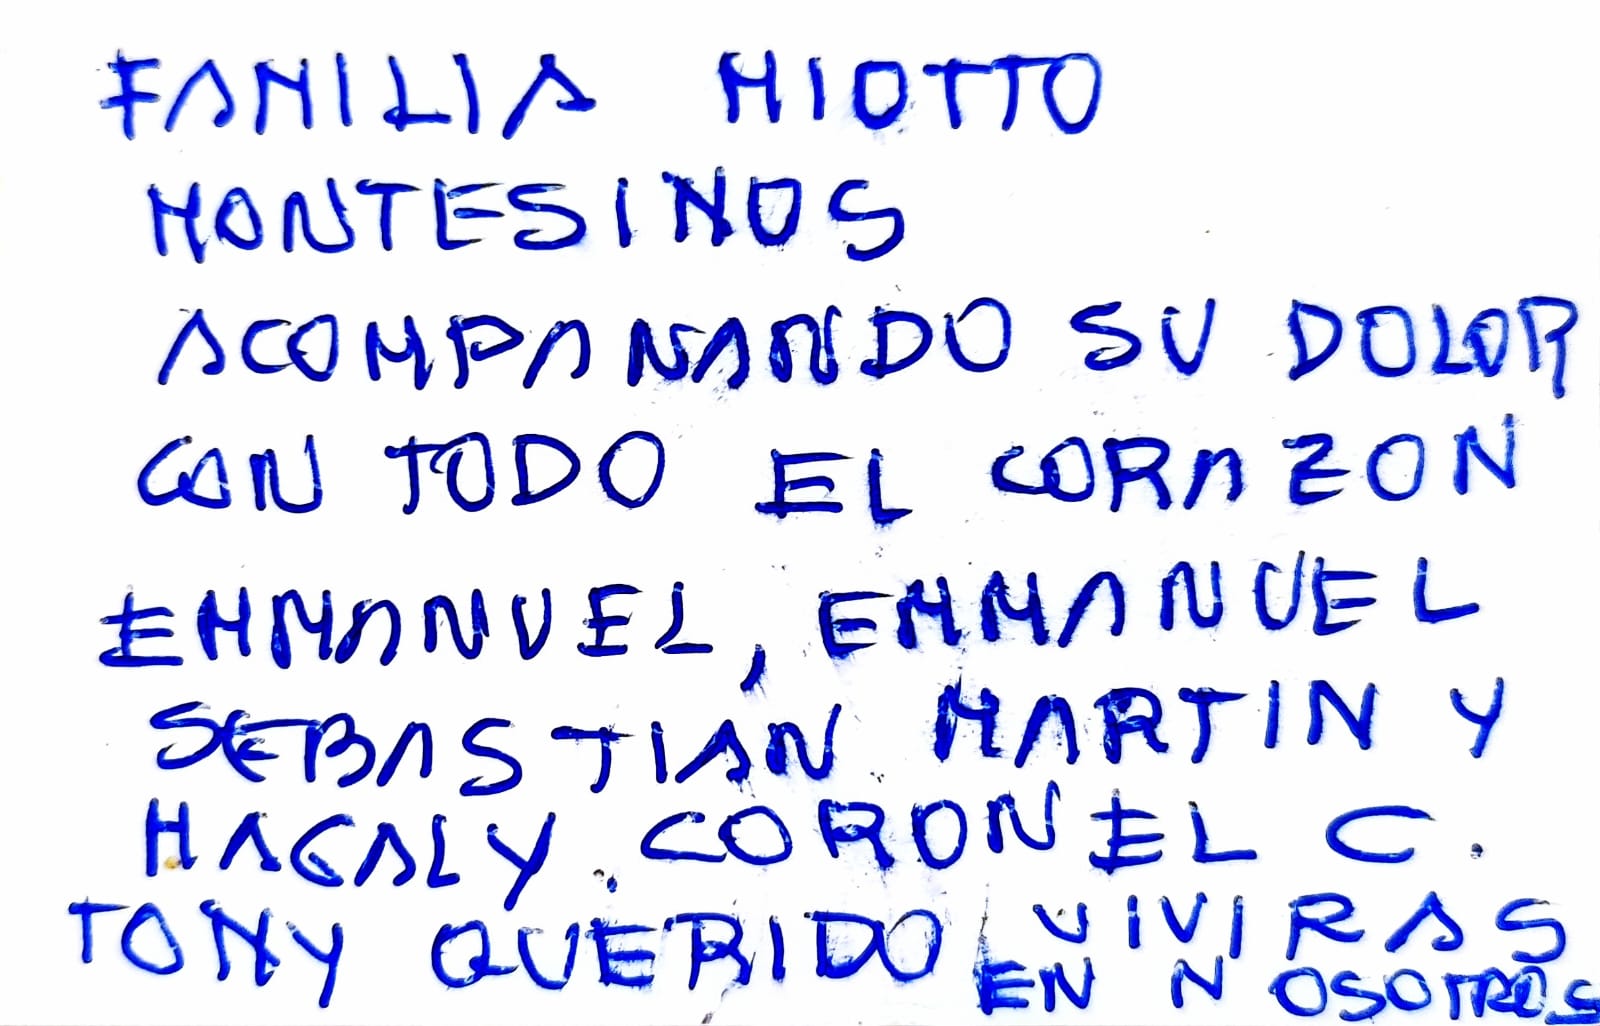 FAMILIA MIOTTO
MONTESINOS
ACOMPANANDO SU DOLOR
CON TODO EL CORAZON
EMMANUEL, EMMANUEL
SEBASTIAN MARTIN Y
MAGALY. CORONEL C.
TONY QUERIDO VIVIRAS
EN NOSOTROS